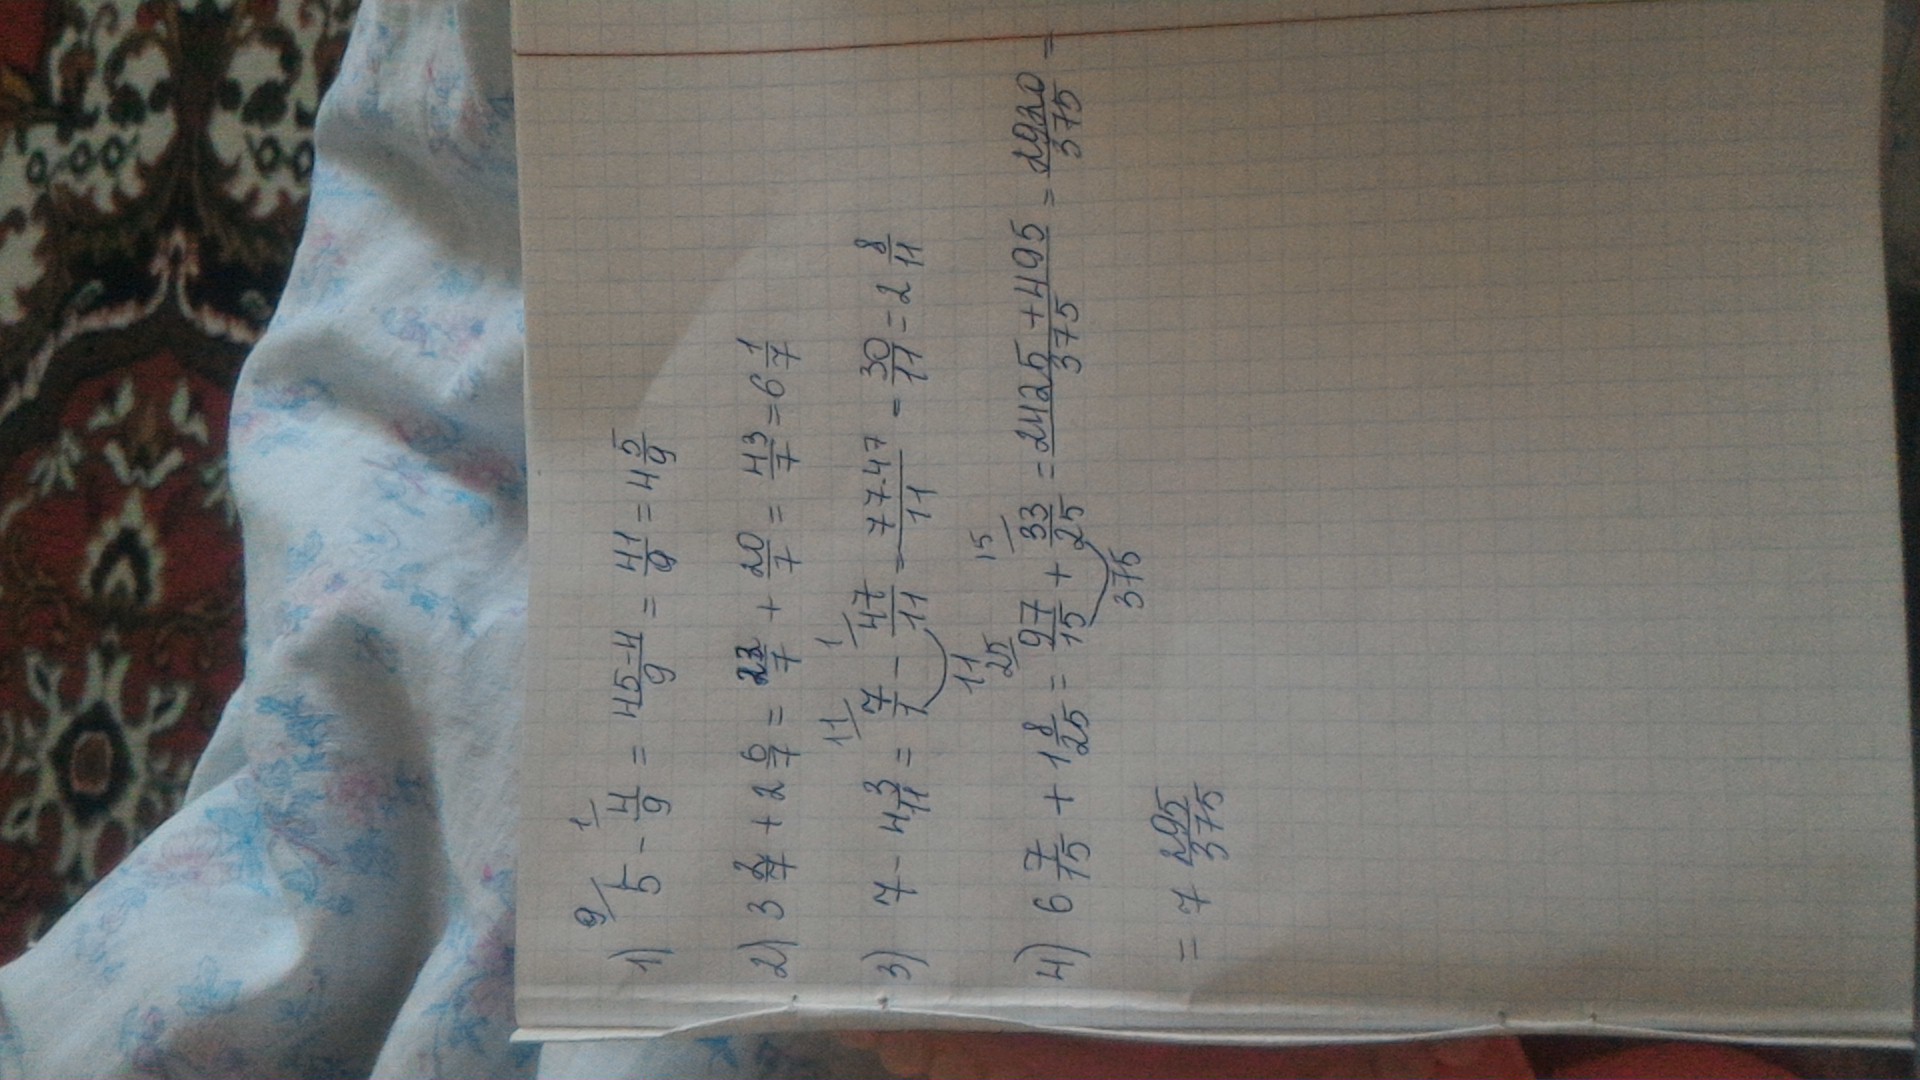 9/ 1/
1) 5/1 - 4/9 = 45-4/9 = 41/9 = 4 5/9
2) 3 2/7 + 2 6/7 = 23/7 + 20/7 = 43/7 = 6 1/7
11/ 1/
3) 7 - 4 3/11 = 7/1 - 47/11 = 77-47/11 = 30/11 = 2 8/11
11
25/ 15/
4) 6 7/15 + 1 8/25 = 97/15 + 33/25 = 2425+495/375 = 2920/375 =
375
= 7 295/375